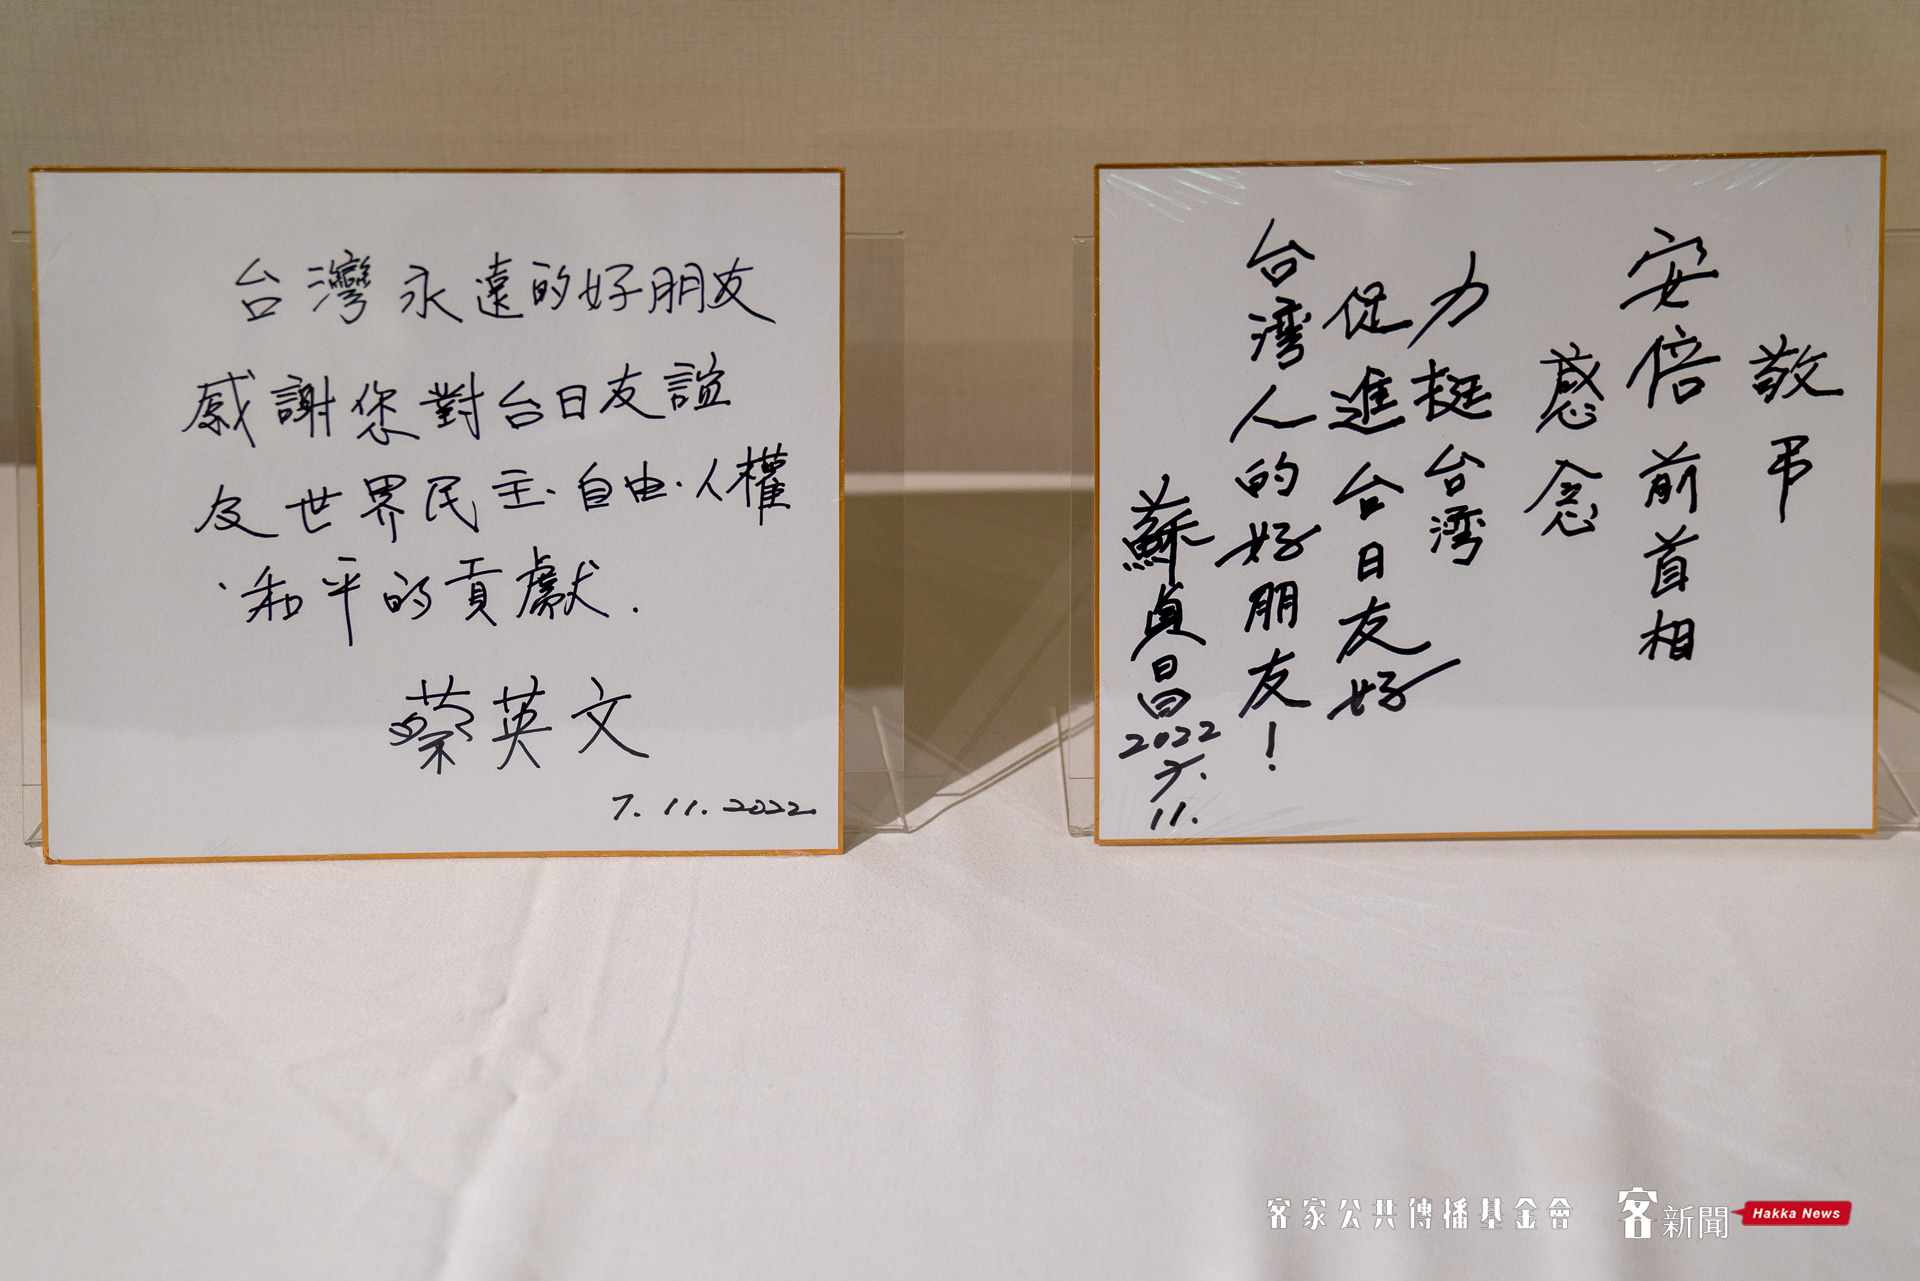 台灣永遠的好朋友
感謝您對台日友誼
及世界民主.自由.人權
、和平的貢獻.
蔡英文
7.11.2022
敬弔
安倍前首相
感念
力挺台湾
促進台日友好
台湾人的好朋友!
蘇貞昌
2022
7.
11.
客家公共傳播基金會
客新聞
Hakka News